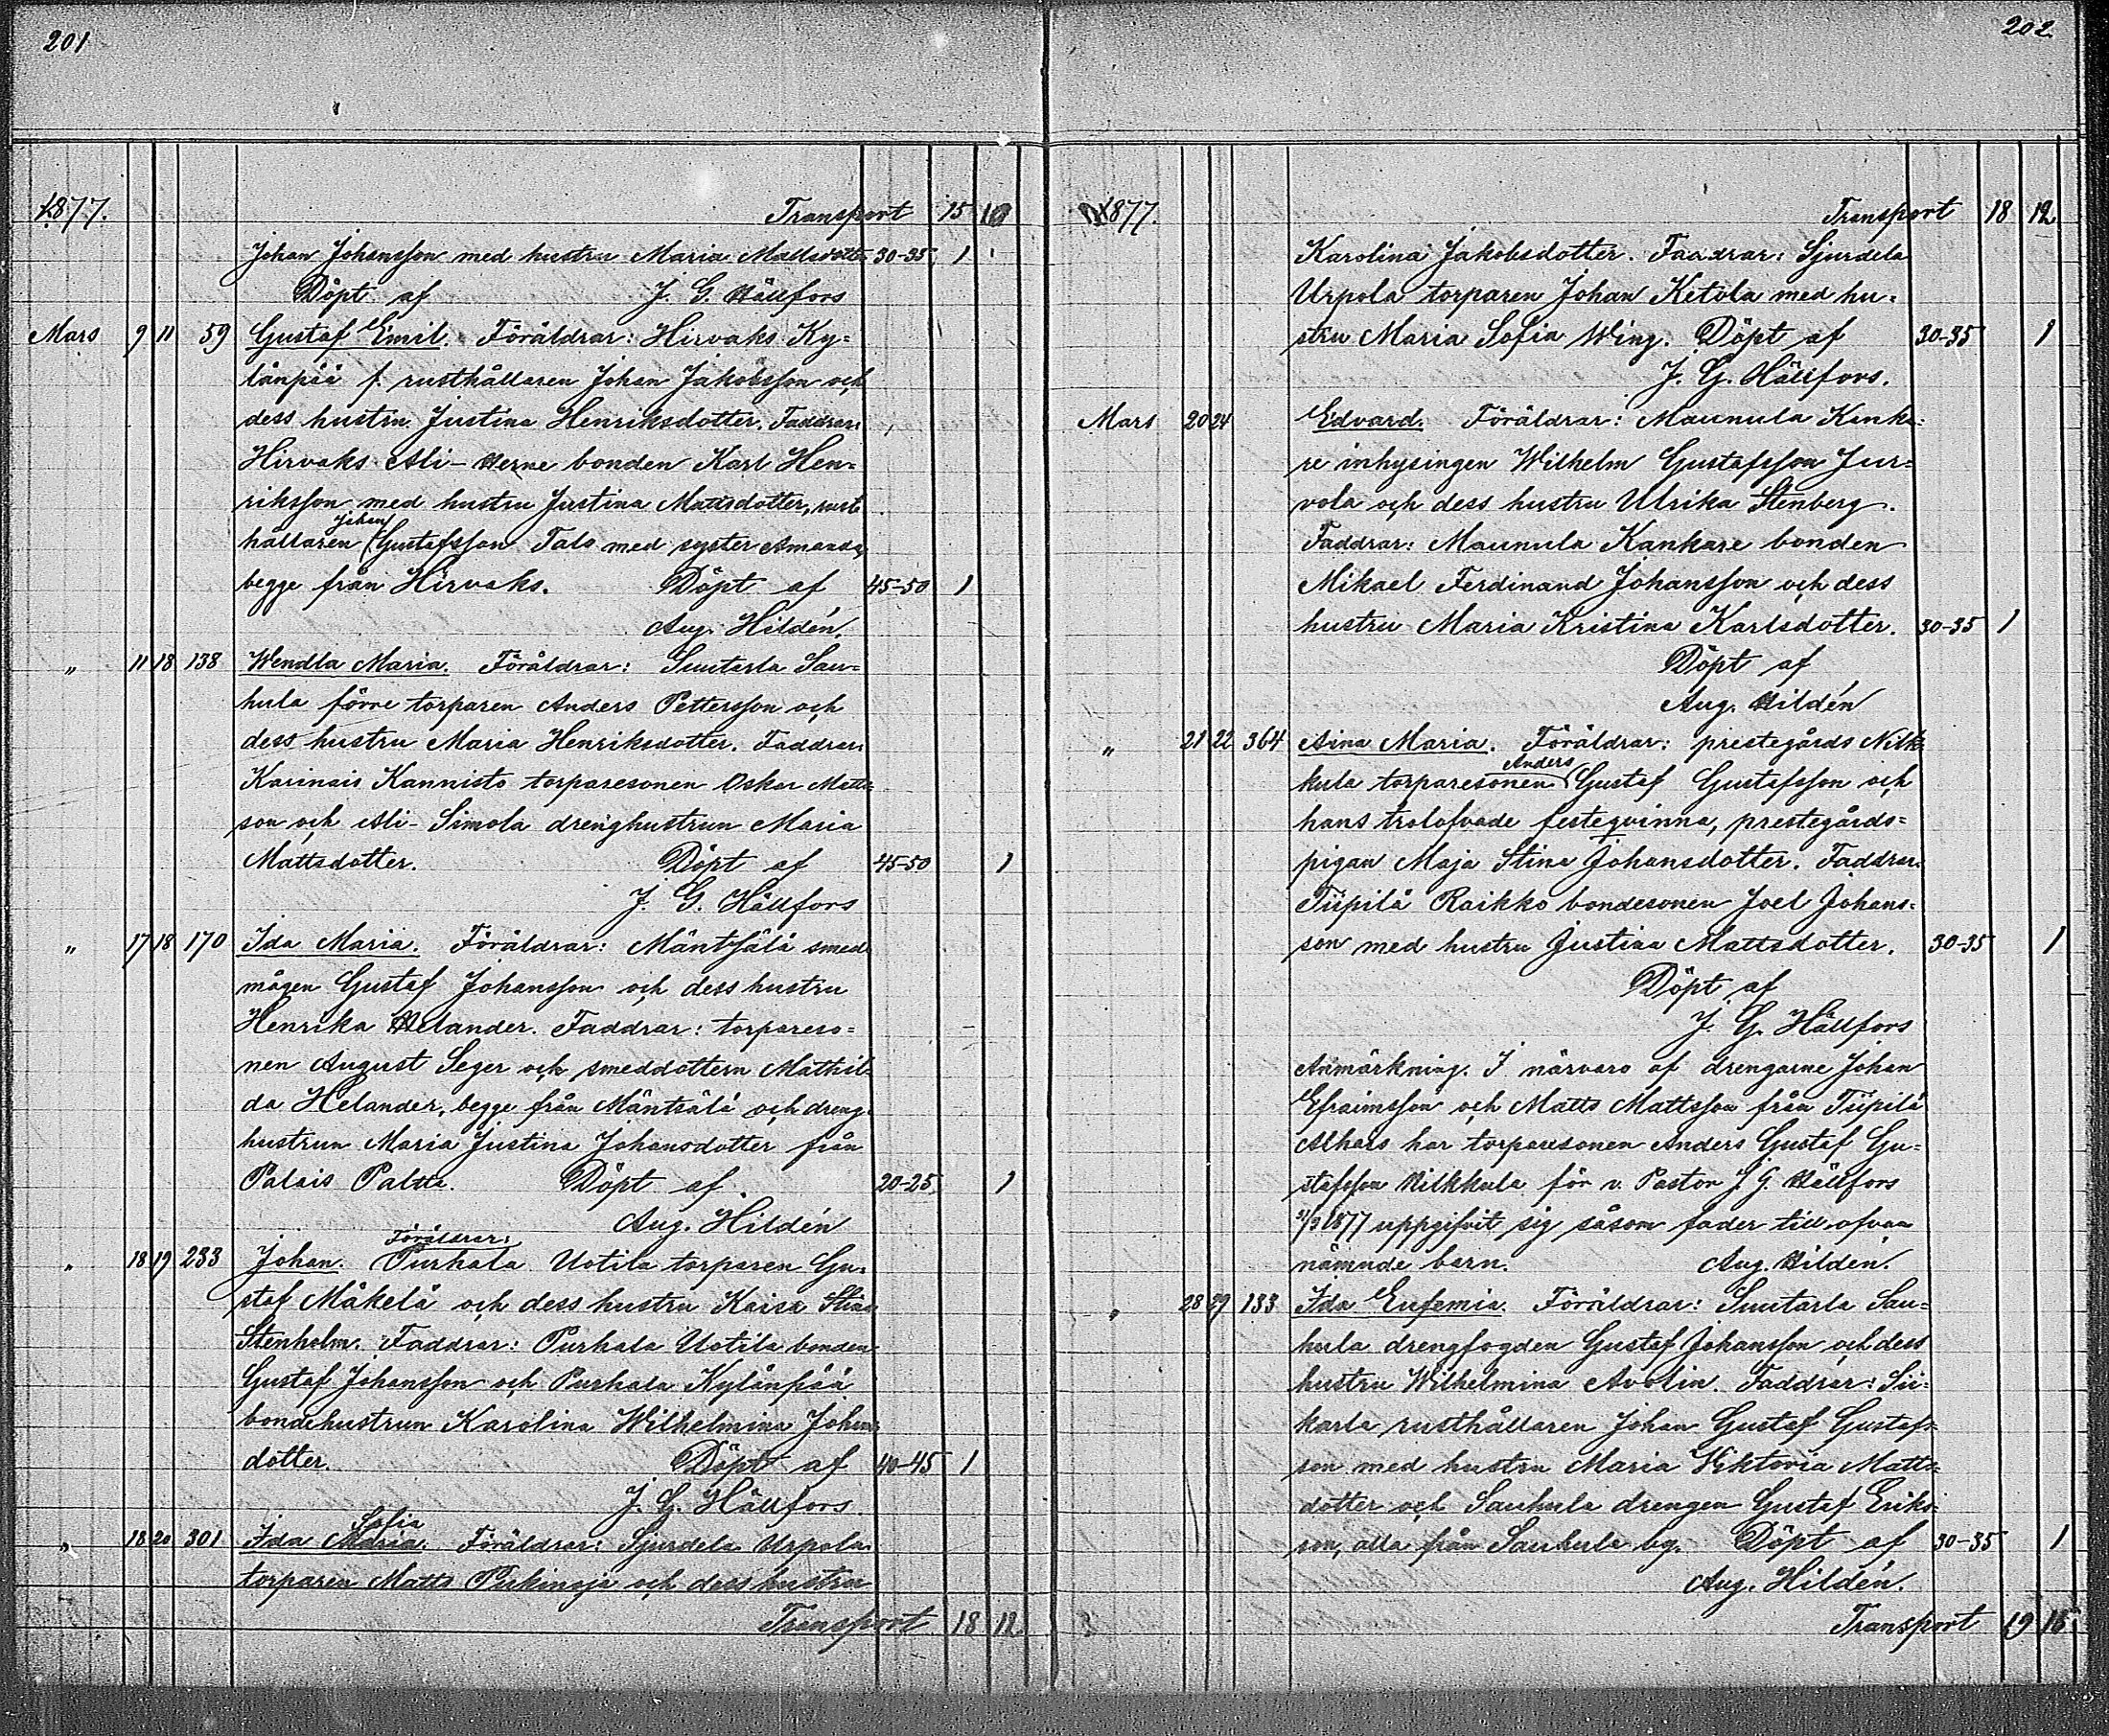 201
1877. Transport 15 10
Johan Johansson med hustru Maria Mattsdotter 30-35 1
Döpt af J. G. Hällfors
Mars 9 11 59 Gustaf Emil. Föräldrar: Hirvaks Ky-
länpää f. rusthållaren Johan Jakobsson och
dess hustru Justina Henriksdotter. Faddrar:
Hirvaks Ali-Herne bonden Karl Hen-
riksson med hustru Justina Mattsdotter, rust
Johan
hållaren Gustafsson Talo med syster Amanda,
begge från Hirvaks. Döpt af 45-50 1
Aug. Hildén.
" 11 18 138 Wendla Maria. Föräldrar: Suutarla Sau-
hula förre torparen Anders Pettersson och
dess hustru Maria Henriksdotter. Faddrar:
Karinais Kannisto torparesonen Oskar Matts-
son och Ali-Simola drenghustrun Maria
Mattsdotter. Döpt af 45-50 1
J. G. Hällfors
" 17 18 170 Ida Maria. Föräldrar: Mäntsälä smed
mågen Gustaf Johansson och dess hustru
Henrika Helander. Faddrar: torpareso-
nen August Seger och smeddottern Mathil-
da Helander, begge från Mäntsälä och dreng-
hustrun Maria Justina Johansdotter från
Palais Paltta. Döpt af 20-25 1
Aug. Hildén
Föräldrar:
" 18 19 233 Johan. Purhala Uotila torparen Gu-
staf Mäkelä och dess hustru Kaisa Stina
Stenholm. Faddrar: Purhala Uotila bonden
Gustaf Johansson och Purhala Kylänpää
bondehustrun Karolina Wilhelmina Johans
dotter. Döpt af 40-45 1
J. G. Hällfors
Sofia
" 18 20 301 Ida Maria. Föräldrar: Sjurdela Urpola
torparen Matts och dess hustru
Transport 18 12
202.
1877. Transport 18 12
Karolina Jakobsdotter. Faddrar: Sjurdela
Urpola torparen Johan Ketola med hu-
stru Maria Sofia Wing. Döpt af 30-35 1
J. G. Hällfors.
Mars 20 24 Edvard. Föräldrar: Maunula Kanka-
re inhysingen Wilhelm Gustafsson Jur-
vola och dess hustru Ulrika Stenberg.
Faddrar: Maunula Kankare bonden
Mikael Ferdinand Johansson och dess
hustru Maria Kristina Karlsdotter. 30-35 1
Döpt af
Aug. Hildén
" 21 22 364 Aina Maria. Föräldrar: prestegårds Nilk-
Anders
kula torparesonen Gustaf Gustafsson och
hans trolofvade festeqvinna, prestegårds-
pigan Maja Stina Johansdotter. Faddrar:
Tiipilä Raikko bondesonen Joel Johans-
son med hustru Justina Mattsdotter. 30-35 1
Döpt af
J. G. Hällfors
Anmärkning. I närvaro af drengarne Johan
Efraimsson och Matts Mattsson från Tiipilä
Alhais har torparesonen Anders Gustaf Gu-
stafsson Nilkkula för v. Pastor J. G. Hällfors
21/3 1877 uppgifvit sig såsom fader till ofvan
nämnde barn. Aug. Hildén.
" 28 29 133 Ida Eufemia. Föräldrar: Suutarla Sau-
hula drengfogden Gustaf Johansson och dess
hustru Wilhelmina Avolin. Faddrar: Sii-
karla rusthållaren Johan Gustaf Gustafs-
son med hustru Maria Viktoria Matts-
dotter och Sauhula drengen Gustaf Eriks-
son, alla från Sauhula by. Döpt af 30-35 1
Aug. Hildén.
Transport 19 15